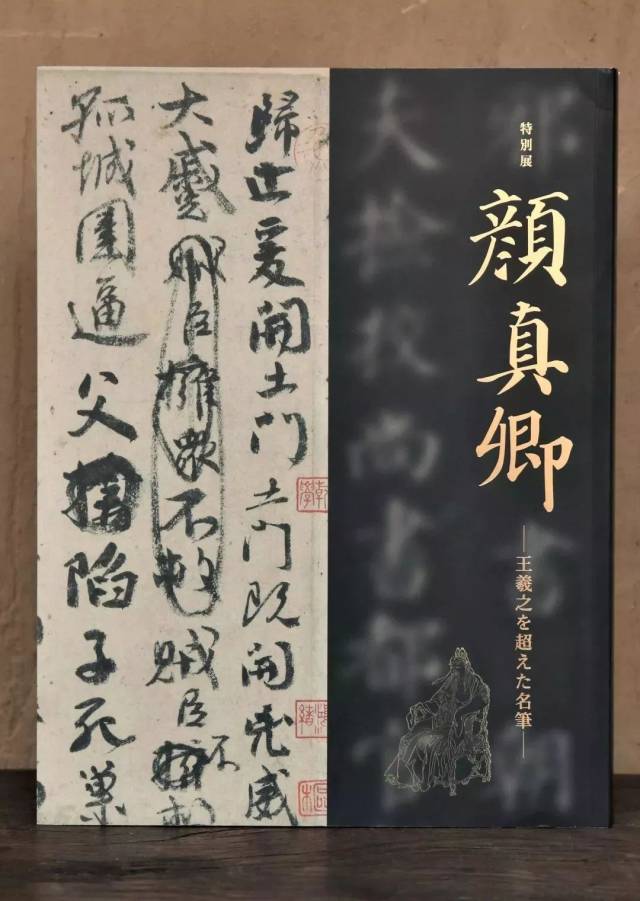 特別展
顔真卿
―王羲之を超えた名筆―
歸止爰開土門土門既開兇威
大蹙賊臣擁衆不救賊臣不救
孤城圍逼父陷子死巢